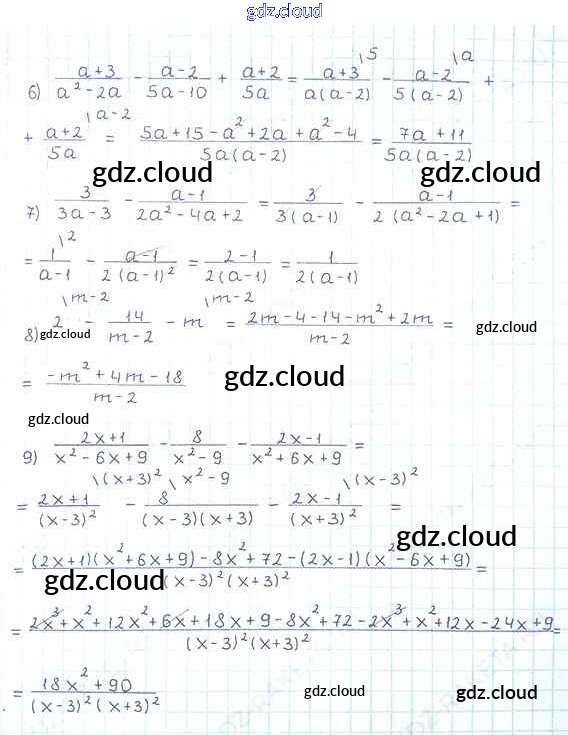 gdz.cloud
6) (a+3)/(a²-2a) - (a-2)/(5a-10) + (a+2)/(5a) = (a+3)/(a(a-2)) \5 - (a-2)/(5(a-2)) \a +
+ (a+2)/(5a) \a-2 = (5a+15-a²+2a+a²-4)/(5a(a-2)) = (7a+11)/(5a(a-2))
gdz.cloud gdz.cloud
7) 3/(3a-3) - (a-1)/(2a²-4a+2) = 3/(3(a-1)) - (a-1)/(2(a²-2a+1)) =
= 1/(a-1) \2 - (a-1)/(2(a-1)²) = (2-1)/(2(a-1)) = 1/(2(a-1))
8) 2 \m-2 - 14/(m-2) - m \m-2 = (2m-4-14-m²+2m)/(m-2) =
gdz.cloud gdz.cloud
= (-m²+4m-18)/(m-2)
gdz.cloud
gdz.cloud
9) (2x+1)/(x²-6x+9) - 8/(x²-9) - (2x-1)/(x²+6x+9) =
= (2x+1)/((x-3)²) \(x+3)² - 8/((x-3)(x+3)) \x²-9 - (2x-1)/((x+3)²) \(x-3)² =
gdz.cloud
= ((2x+1)(x²+6x+9)-8x²+72-(2x-1)(x²-6x+9))/((x-3)²(x+3)²) =
gdz.cloud
= (2x³+x²+12x²+6x+18x+9-8x²+72-2x³+x²+12x-24x+9)/((x-3)²(x+3)²) =
= (18x²+90)/((x-3)²(x+3)²)
gdz.cloud gdz.cloud